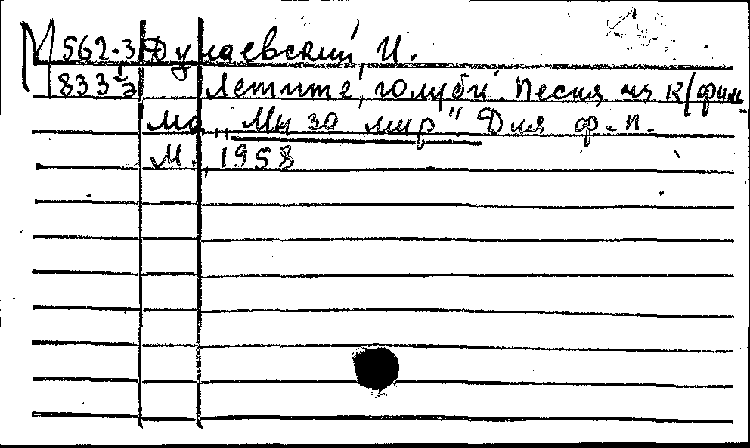 М 562-3 Дунаевский, И.
833 Летите, голуби. Песня из к/филь
ма „Мы за мир" Для ф.-п.
М., 1958